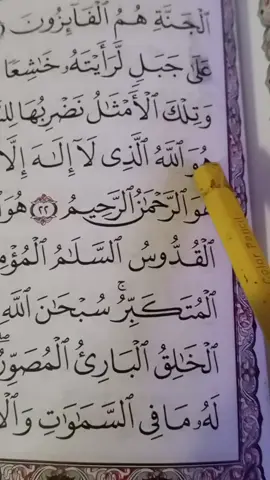 ٱلۡجَنَّةِ هُمُ ٱلۡفَآئِزُونَ
عَلَىٰ جَبَلٖ لَّرَأَيۡتَهُۥ خَٰشِعٗا
وَتِلۡكَ ٱلۡأَمۡثَٰلُ نَضۡرِبُهَا
هُوَ ٱللَّهُ ٱلَّذِي لَآ إِلَٰهَ إِلَّا
هُوَ ٱلرَّحۡمَٰنُ ٱلرَّحِيمُ ٢٢ هُوَ
ٱلۡقُدُّوسُ ٱلسَّلَٰمُ
ٱلۡمُتَكَبِّرُۚ سُبۡحَٰنَ ٱللَّهِ
ٱلۡخَٰلِقُ ٱلۡبَارِئُ ٱلۡمُصَوِّرُۖ
لَهُۥ مَا فِي ٱلسَّمَٰوَٰتِ